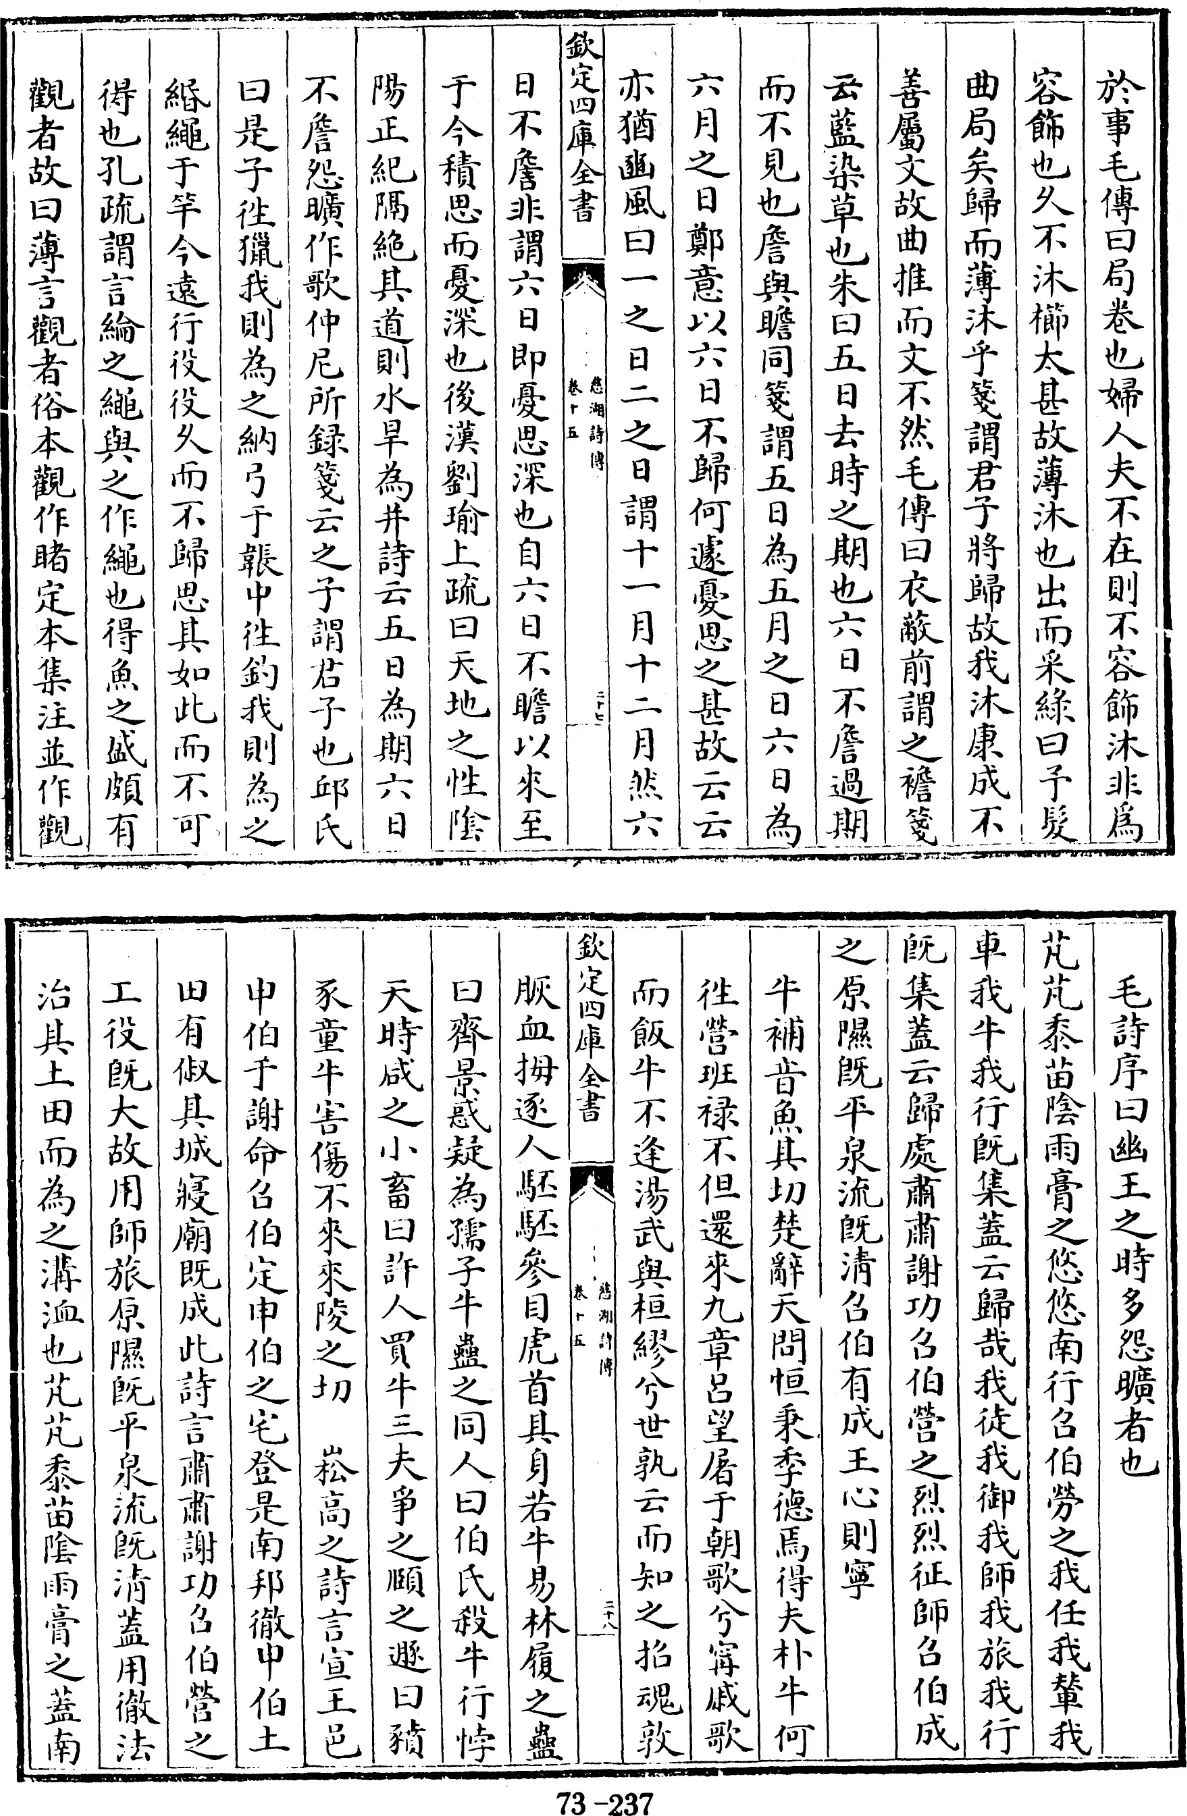 於事毛傳曰局卷也婦人夫不在則不容飾沐非爲
容飾也久不沐櫛太甚故薄沐也出而采緑曰予髮
曲局矣歸而薄沐乎箋謂君子將歸故我沐康成不
善屬文故曲推而文不然毛傳曰衣蔽前謂之襜箋
云藍染草也朱曰五日去時之期也六日不詹過期
而不見也詹與瞻同箋謂五日為五月之日六日為
六月之日鄭意以六日不歸何遽憂思之甚故云云
亦猶豳風曰一之日二之日謂十一月十二月然六
欽定四庫全書
慈湖詩傳
卷十五
二十七
日不詹非謂六日即憂思深也自六日不瞻以來至
于今積思而憂深也後漢劉瑜上疏曰天地之性陰
陽正紀隔絶其道則水旱為并詩云五日為期六日
不詹怨曠作歌仲尼所録箋云之子謂君子也邱氏
曰是子徃獵我則為之納弓于韔中徃釣我則為之
緡繩于竿今遠行役役久而不歸思其如此而不可
得也孔疏謂言綸之繩與之作繩也得魚之盛頗有
觀者故曰薄言觀者俗本觀作睹定本集注並作觀
毛詩序曰幽王之時多怨曠者也
芃芃黍苗陰雨膏之悠悠南行召伯勞之我任我輦我
車我牛我行旣集蓋云歸哉我徒我御我師我旅我行
旣集蓋云歸處肅肅謝功召伯營之烈烈征師召伯成
之原隰旣平泉流旣清召伯有成王心則寧
牛補音魚其切楚辭天問恒秉季德焉得夫朴牛何
徃營班禄不但還來九章吕望屠于朝歌兮甯戚歌
而飯牛不逢湯武與桓繆兮世孰云而知之招魂敦
欽定四庫全書
慈湖詩傳
卷十五
二十八
脄血拇逐人駓駓參目虎首其身若牛易林履之蠱
曰齊景惑疑為孺子牛蠱之同人曰伯氏殺牛行悖
天時咸之小畜曰許人買牛三夫爭之頤之遯曰豶
豕童牛害傷不來來陵之切　崧高之詩言宣王邑
申伯于謝命召伯定申伯之宅登是南邦徹申伯土
田有俶其城寢廟既成此詩言肅肅謝功召伯營之
工役旣大故用師旅原隰旣平泉流旣清蓋用徹法
治其土田而為之溝洫也芃芃黍苗陰雨膏之蓋南
73-237